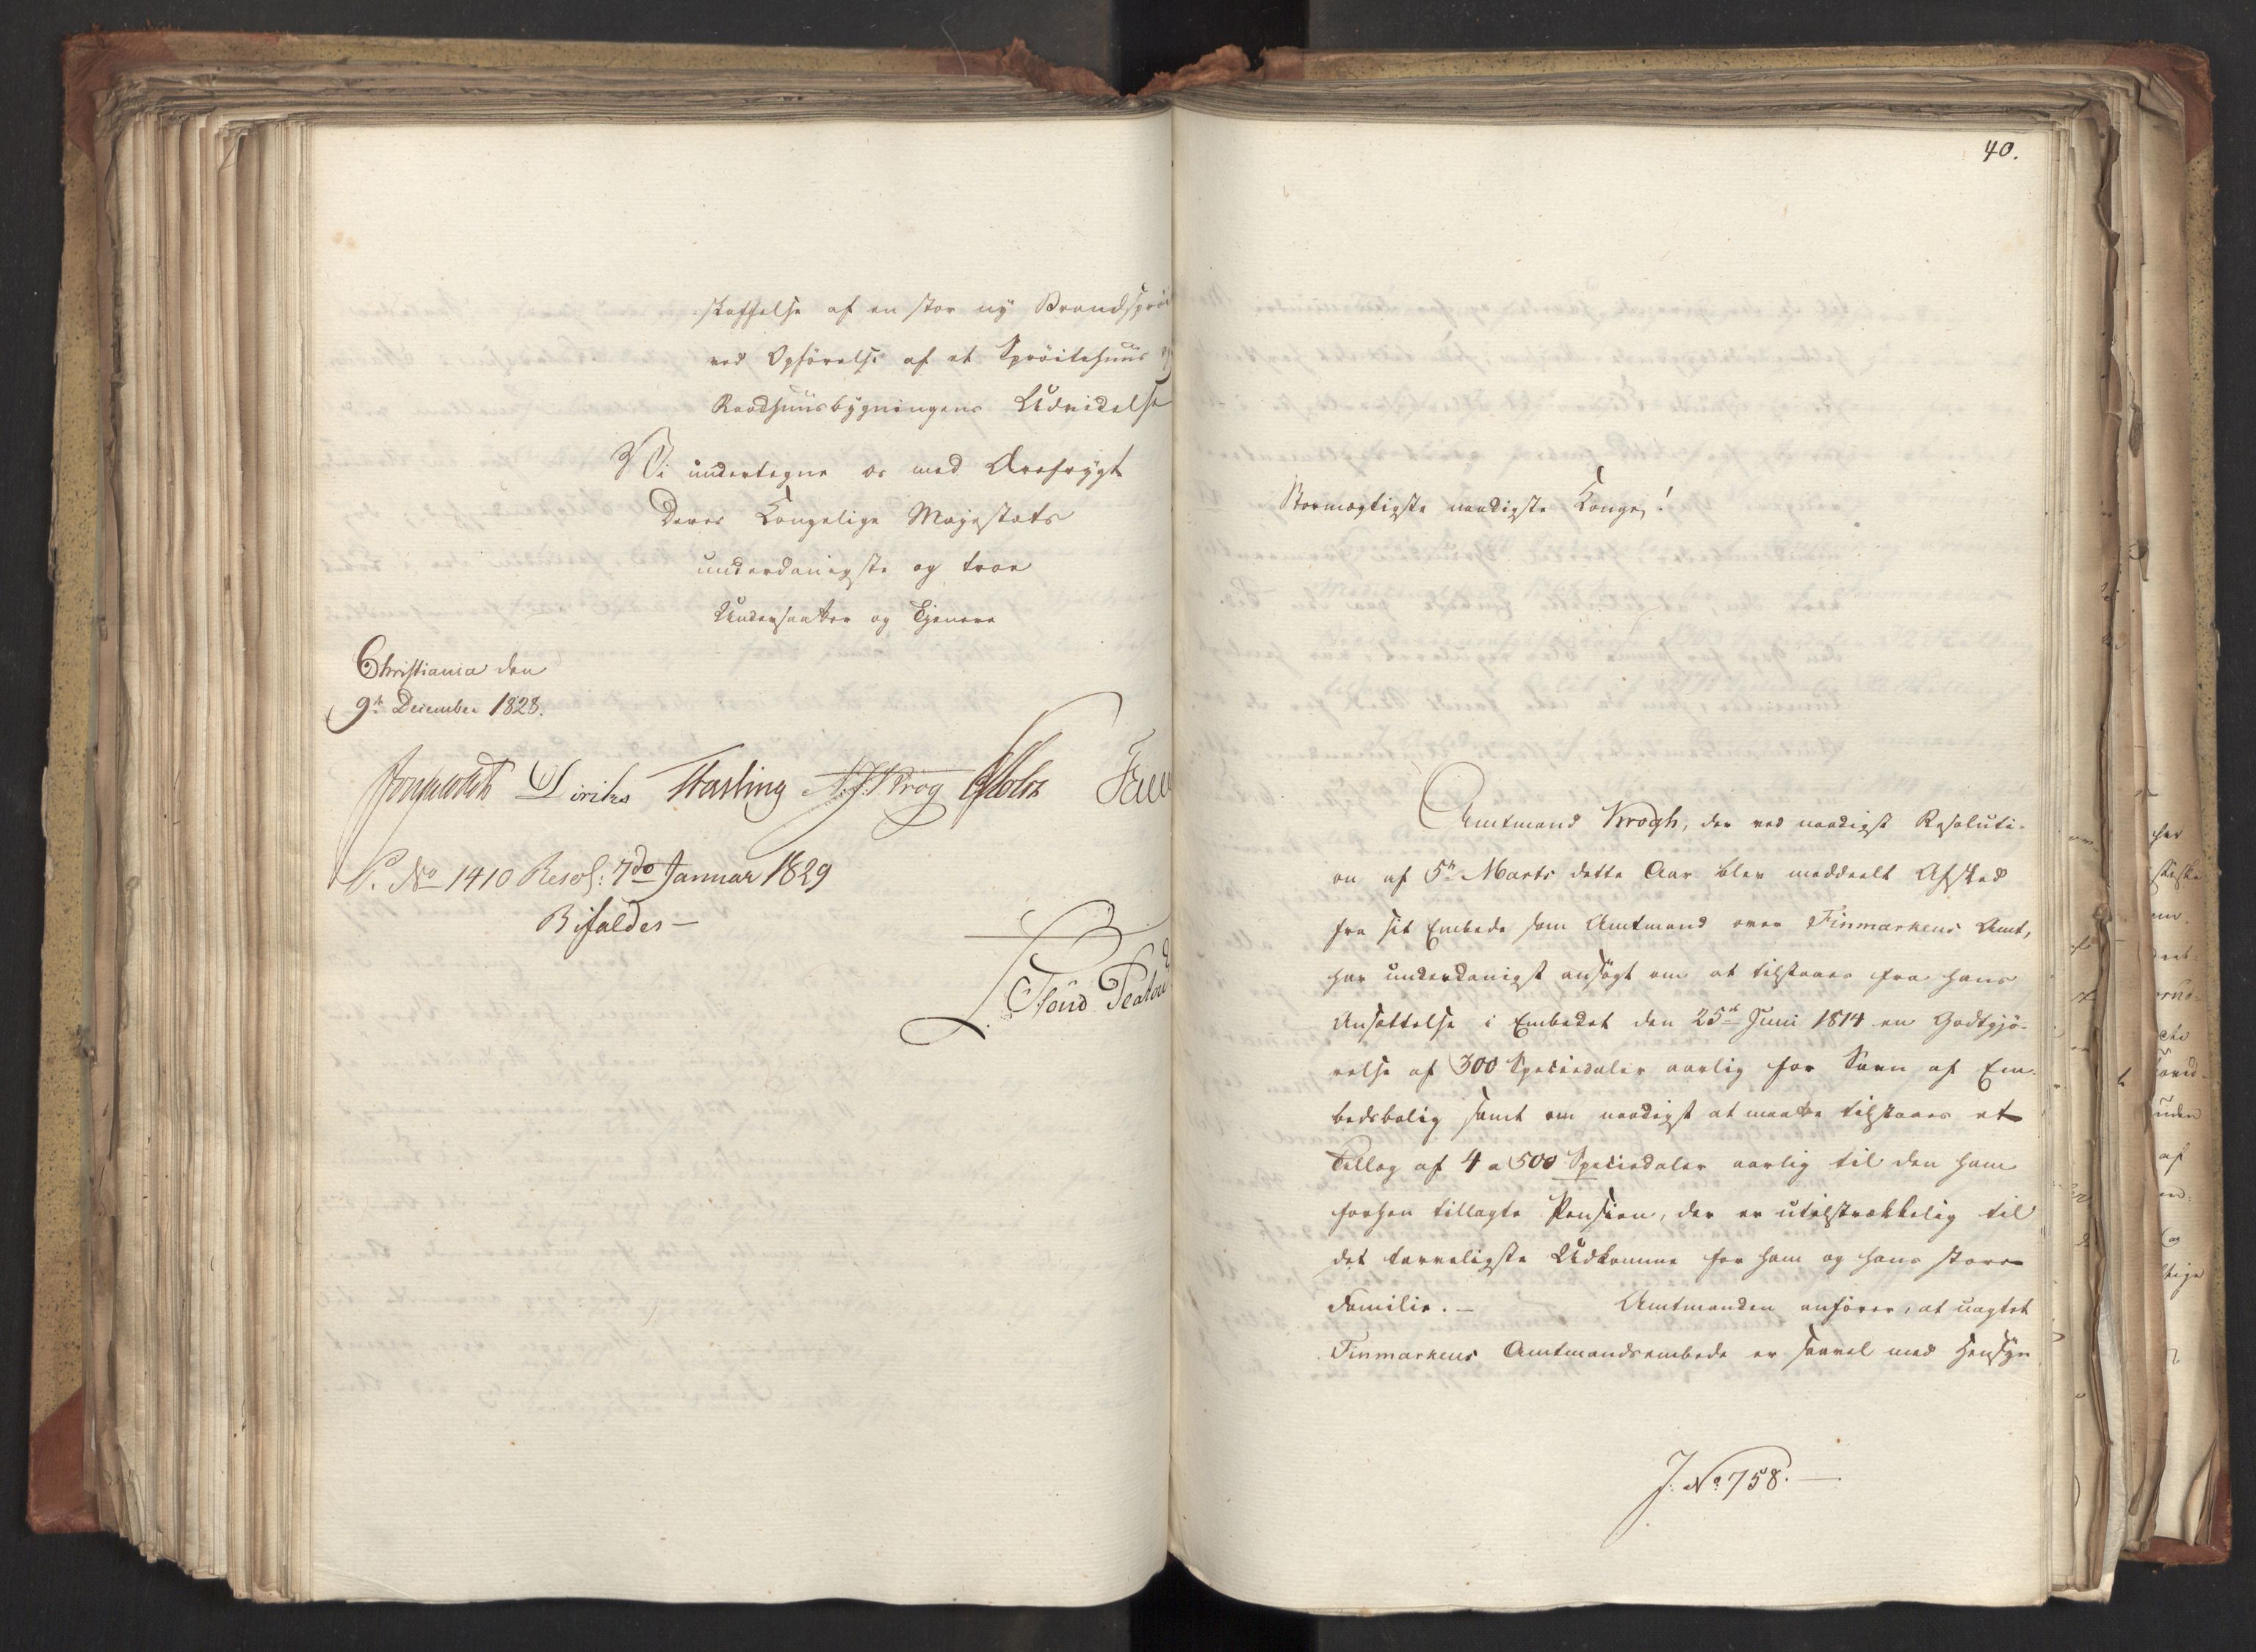 skaffelse af en stor ny Brandsprøi
ved Opførelse af et Sprøitehuus og
Raadhuusbygningens Udvidelse
Vi undertegne os med Ærefrygt
Deres Kongelige Majestæts
underdanigste og troe
Undersaatter og Tjenere
Christiania den
9de December 1828.
Diriks Fasting Krog Holst
P. No 1410 Resol: 7de Januar 1829
Bifaldes —
40.
Stormægtigste naadigste Konge!
Amtmand Krogh, der ved naadigst Resoluti-
on af 5te Marts dette Aar blev meddeelt Afsked
fra sit Embede som Amtmand over Finmarkens Amt,
har underdanigst ansøgt om at tilstaaes fra hans
Ansættelse i Embedet den 25de Juni 1814 en Godtgjø-
relse af 300 Speciedaler aarlig for Savn af Em-
bedsbolig samt om naadigst at maatte tilstaaes et
Tillæg af 4 a 500 Speciedaler aarlig til den ham
forhen tillagte Pension, der er utilstrækkelig til
det tarveligste Udkomme for ham og hans store
Familie. — Amtmanden anfører, at uagtet
Finmarkens Amtmandsembede er saavel med Hensyn
J. No 758. —